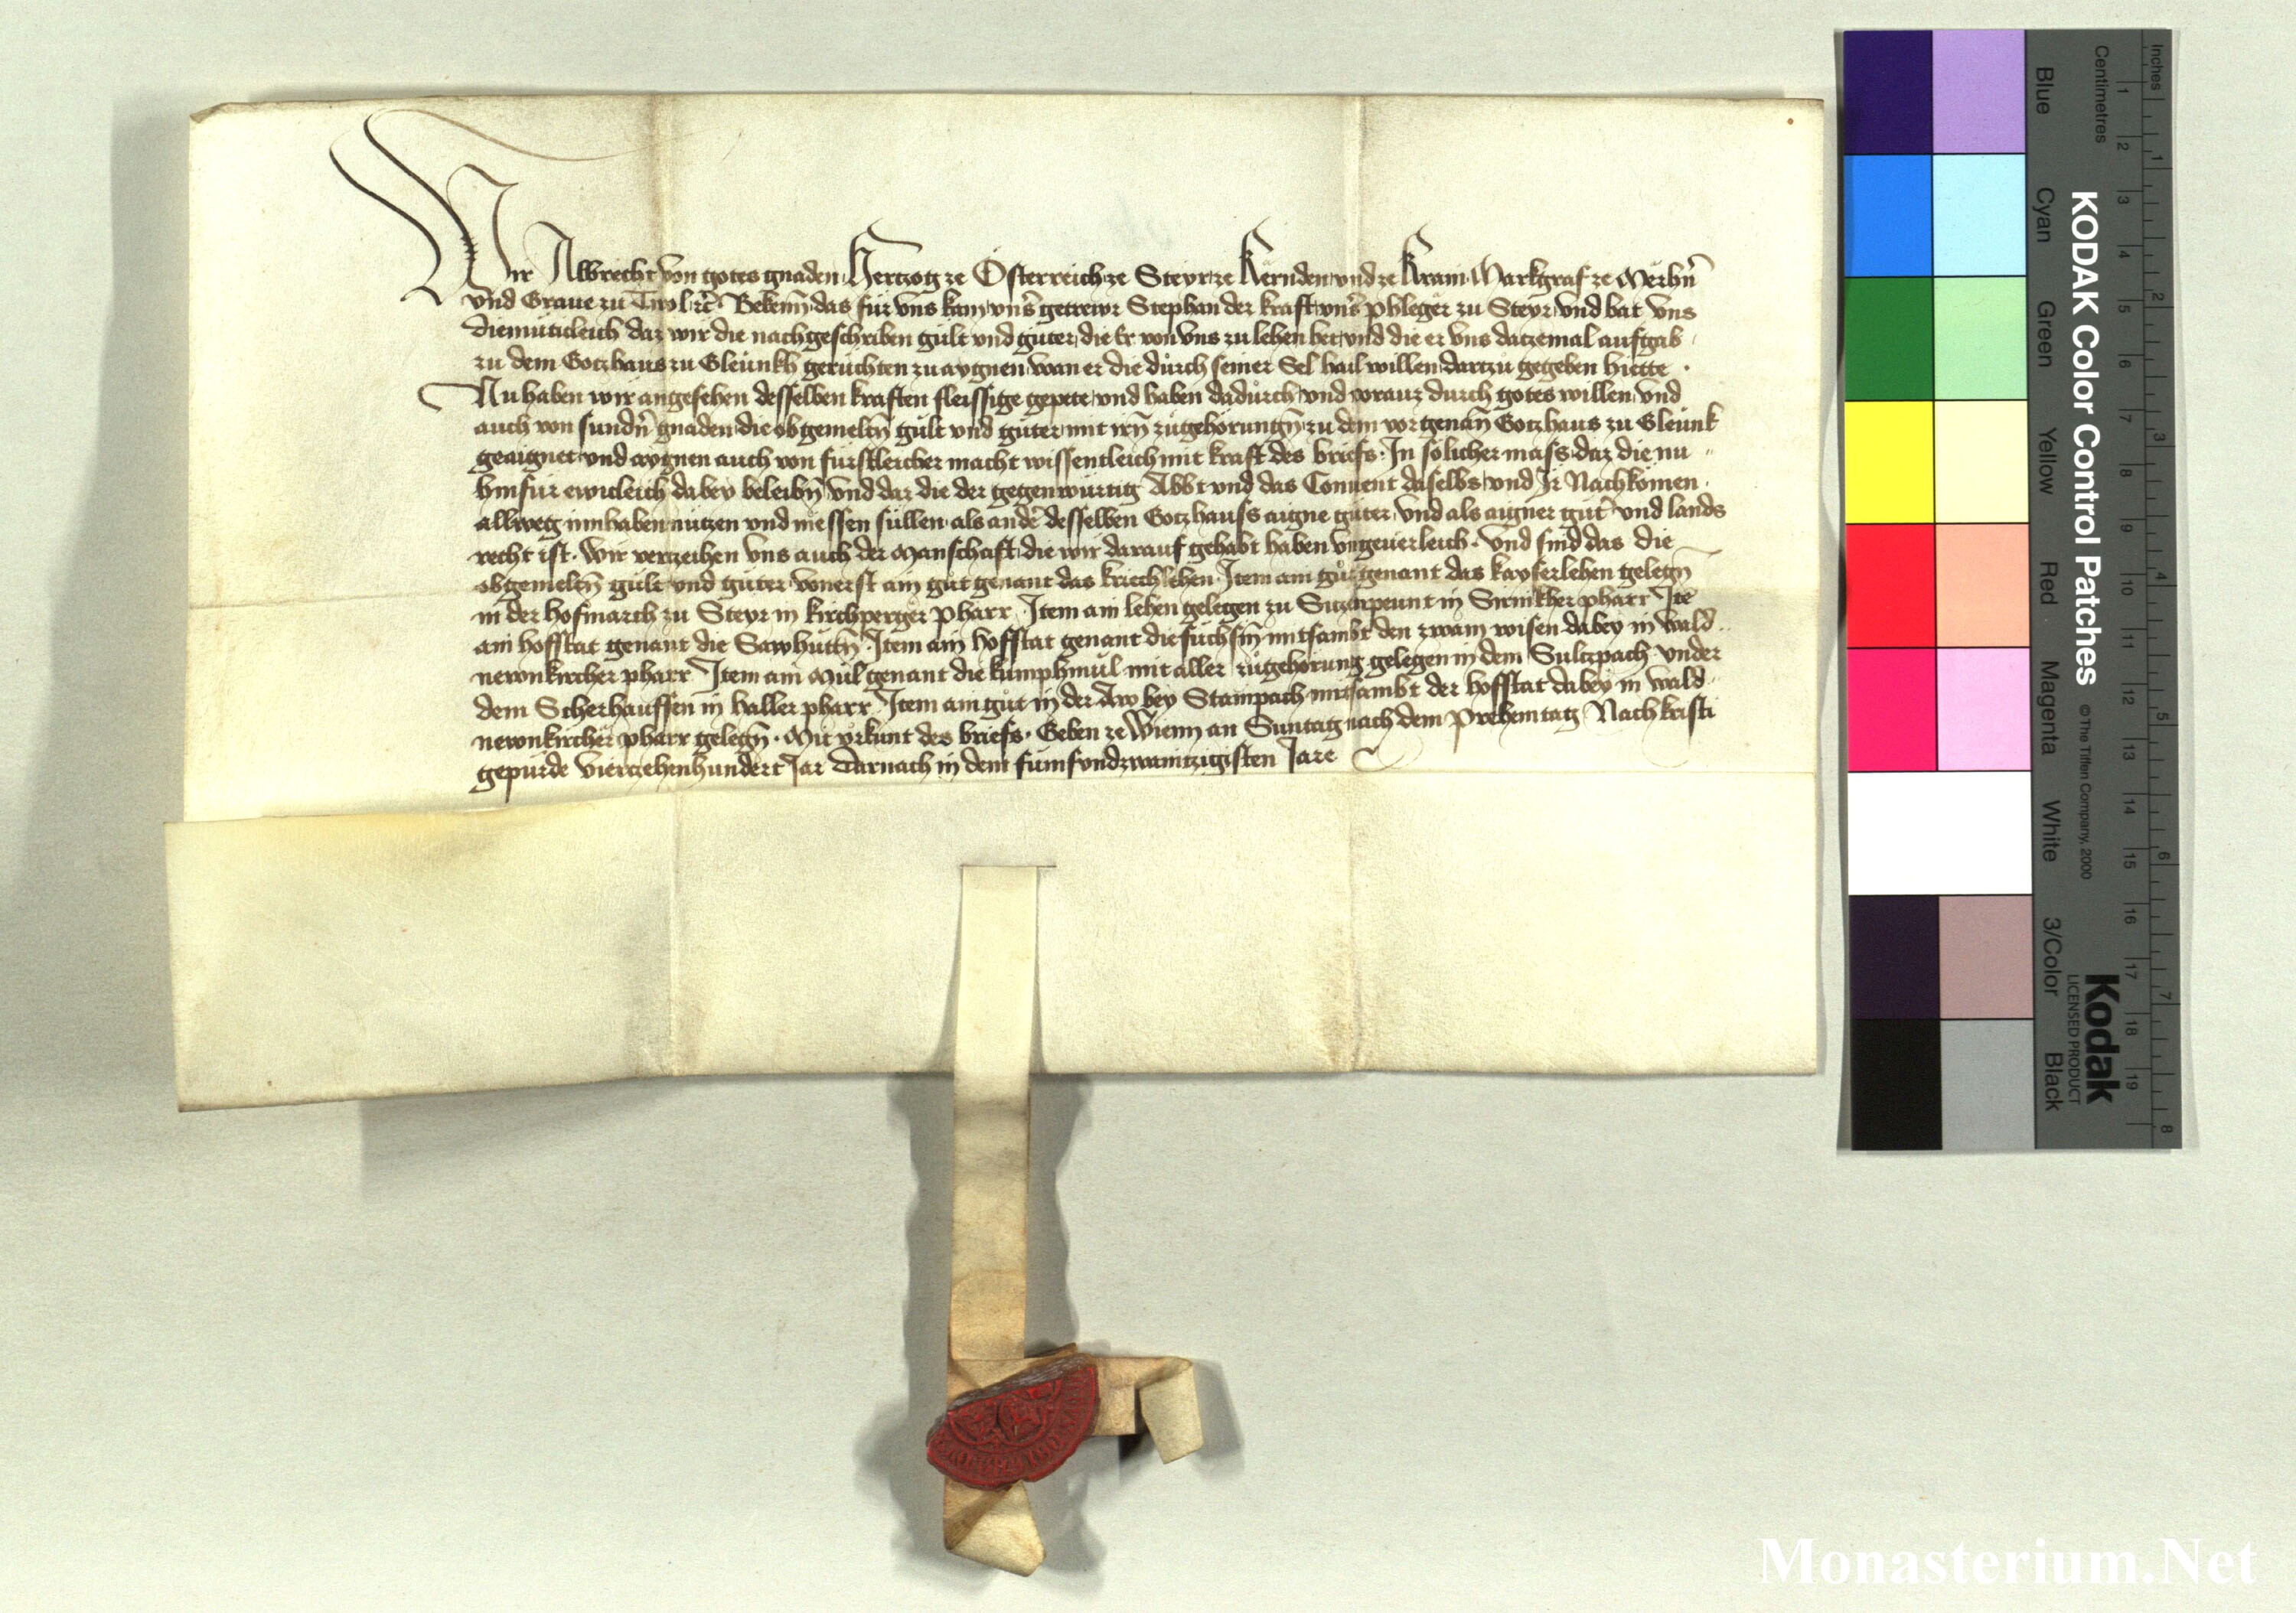 Wir Albrecht von gotes gnaden Hertzog ze Österreich ze Steyr ze Kernden vnd ze Krain Markgraf ze Merhn̄
vnd Graue zu Tirol ꝛc̄ Bekenn̄ das für vns kam vns̄ getrewr Stephan der kraft vns̄ phleger zu Steyr vnd bat vns
diemuticleich daz wir die nachgeschriben gült vnd güter, die Er von vns zu lehen het vnd die er vns datzemal aufgab
zu dem Gotzhaus zu Gleunkh geruchten zu aygnen wan er die durch seiner Sel hail willen dartzu gegeben hiette ·
Nu haben wir angesehen desselben kraften fleissige gepete vnd haben dadurch vnd voraus durch gotes willen vnd
auch von sundn̄ gnaden die obgemeltn̄ gült vnd güter mit irn̄ zugehörungn̄ zu dem vorgenan̄ Gotzhaus zu Gleunk
geaignet vnd aygnen auch von furstleicher macht wissentleich mit kraft des briefs · In solicher mass daz die nu
hinfur ewicleich dabey beleibn̄ vnd daz die der gegenwurtig Abbt vnd das Conuent daselbs vnd Ir Nachkomen
allweg innhaben nutzen vnd niessen süllen als ander desselben Gotzhauss aigne güter vnd als aigner güt̄ vnd lands
recht ist · Wir verzeihen vns auch der Manschaft die wir darauf gehabt haben vngeuerleich · Vnd sind das die
obgemeltn̄ gült vnd güter vonerst ain gut genant das kriechlehen Item ain gut genant das kayserlehen gelegn̄
in der hofmarch zu Steyr in kirchperger pharr Item ain lehen gelegen zu in Sirnikher pharr Ite̅
ain hofstat genant die Sawhuttn̄ · Item ain hofstat genant die fuchsin mitsambt den zwain wisen dabey in Wald
newnkircher pharr Item ain Mül genant die kumphmül mit aller zugehorung gelegen in dem Sultzpach vnder
dem Scherhauffen in haller pharr Item ain gut in der Aw bey Stainpach mitsambt der hofstat dabey in Wald
newnkircher pharr gelegn̄ · Mit vrkunt des briefs · Geben ze Wienn an Suntag nach dem Prehemtag Nach kristi
gepurde viertzehenhundert Jar darnach in dem fumfvndzwaintzigisten Jare
KODAK Color Control Patches © The Tiffen Company, 2000
Kodak
LICENSED PRODUCT
Inches 1 2 3 4 5 6 7 8
Centimetres 1 2 3 4 5 6 7 8 9 10 11 12 13 14 15 16 17 18 19
Blue Cyan Green Yellow Red Magenta White 3/Color Black
Monasterium.Net